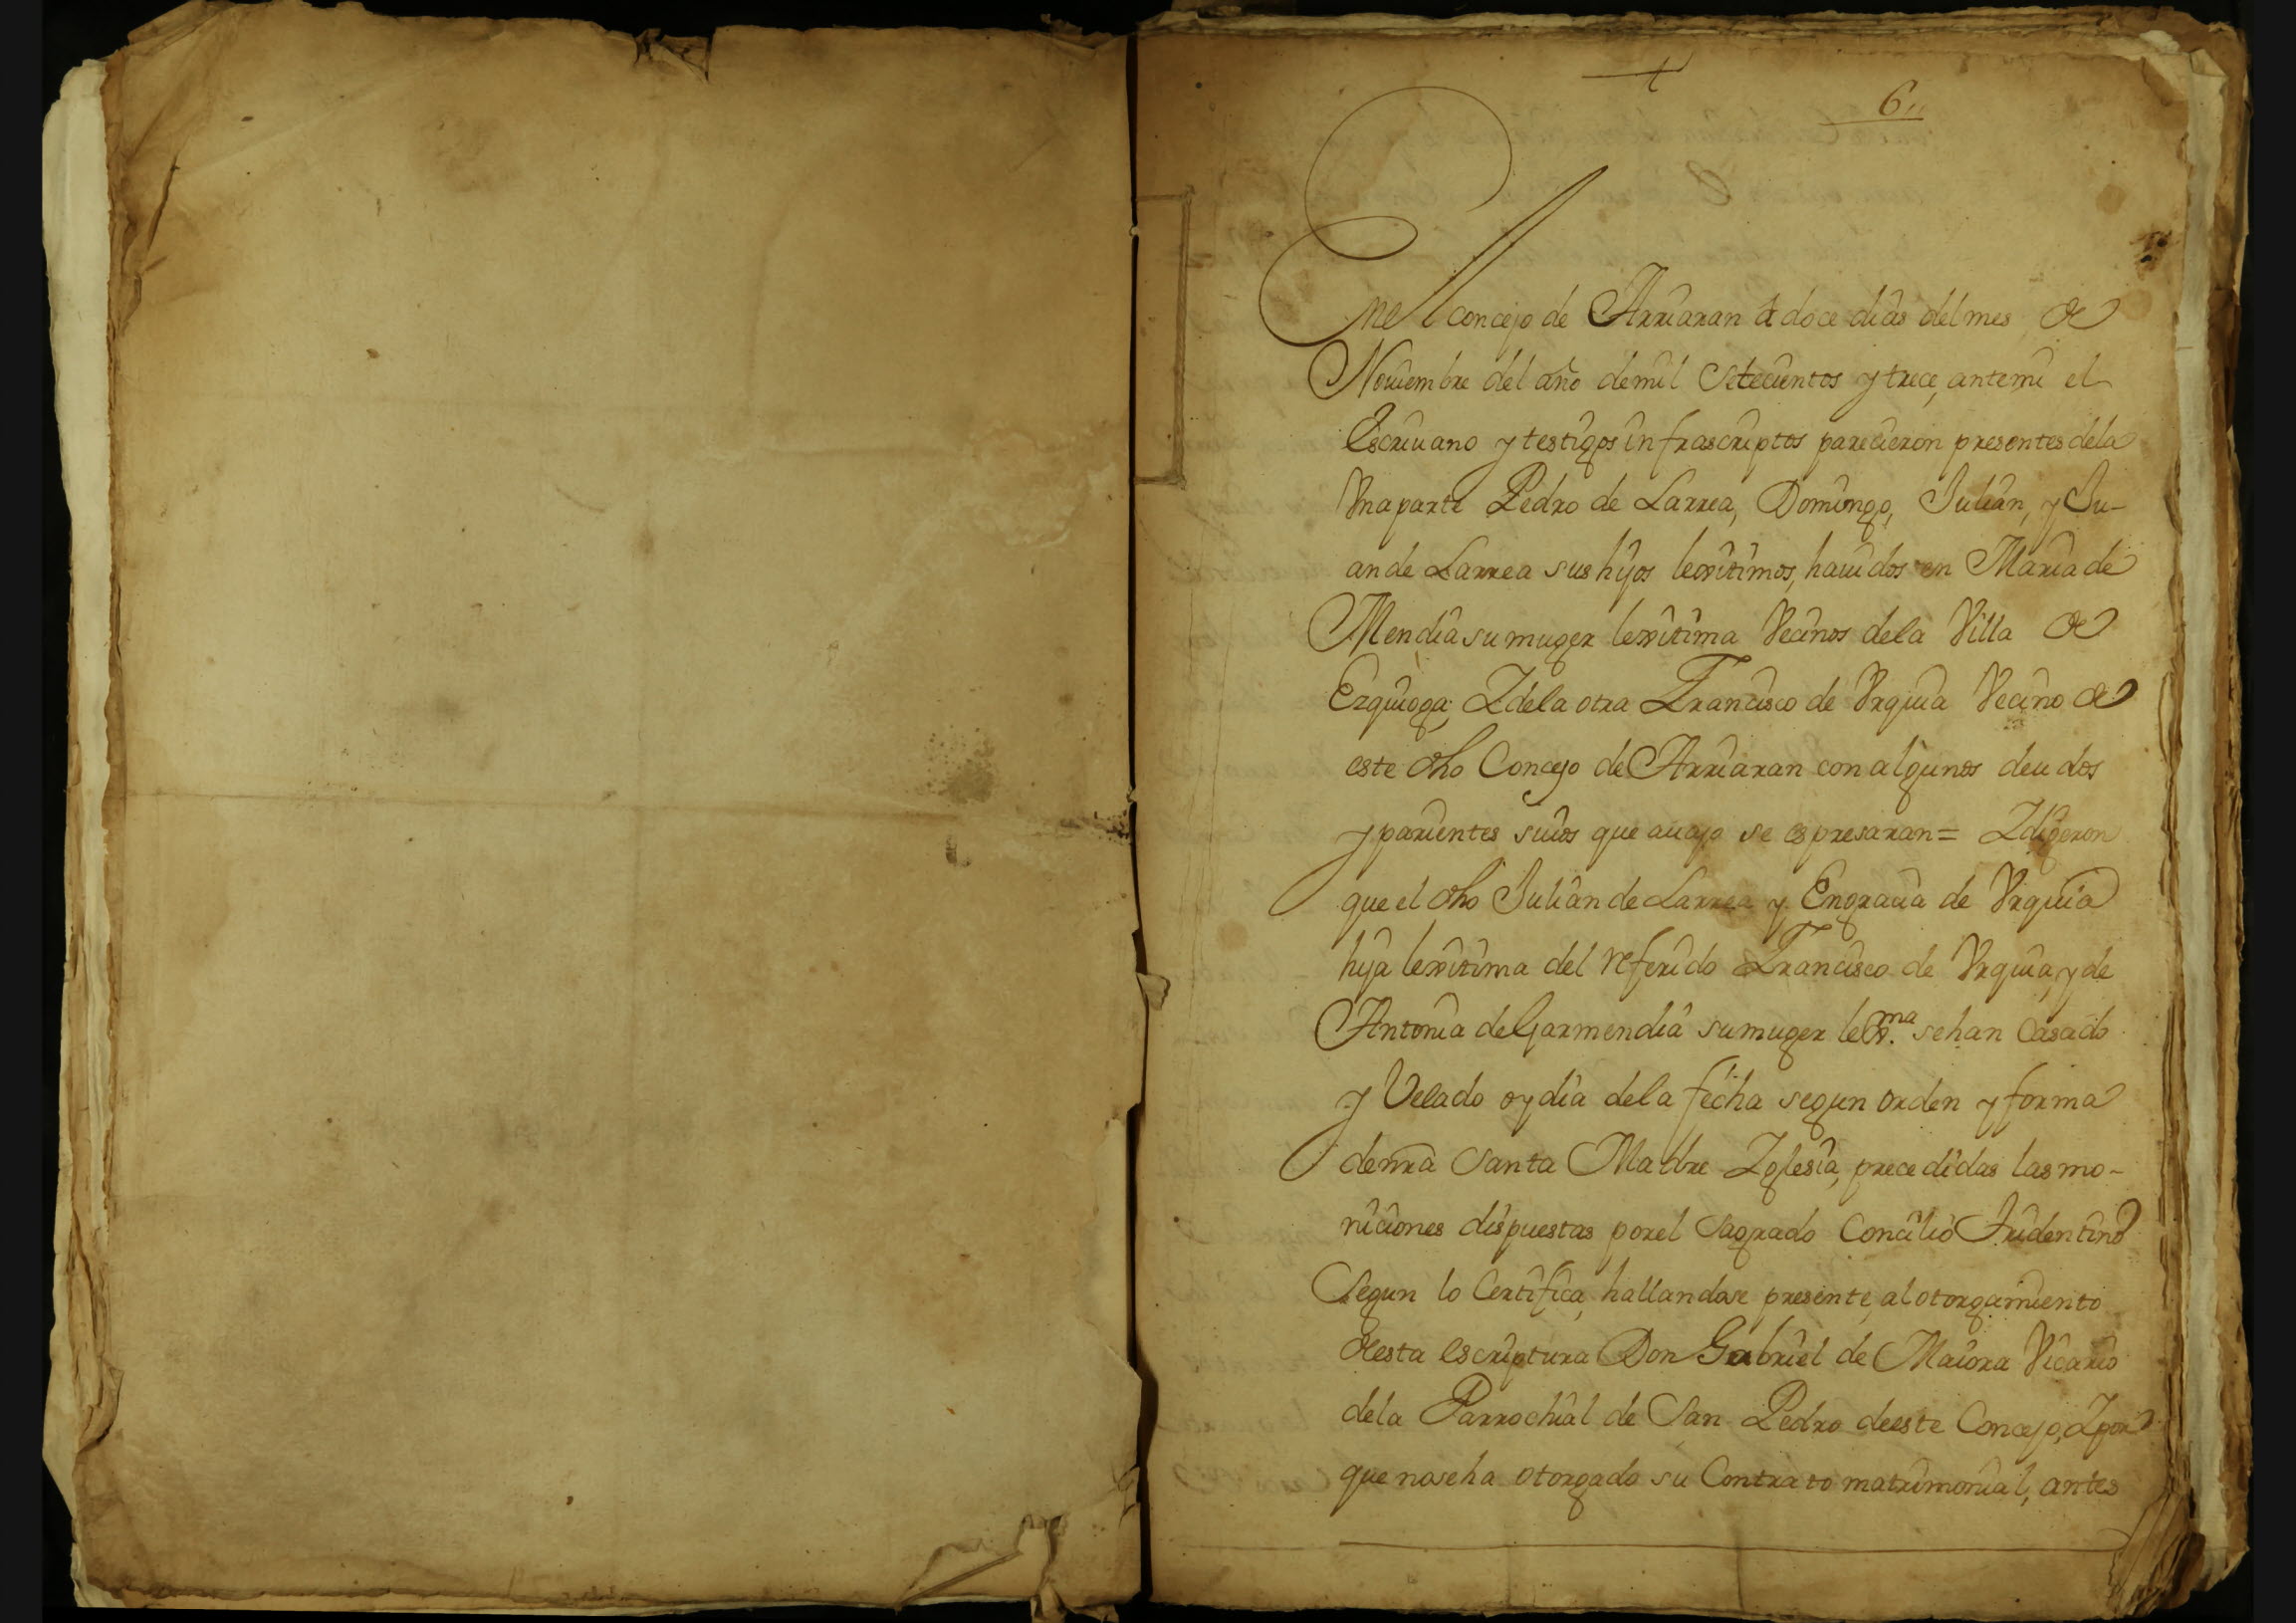 6
En el concejo de Arriaran a doce dias del mes de
Nouiembre del año de mil setecientos y trece, ante mi el
Escriuano y testigos infrascriptos parecieron presentes de la
Vna parte Pedro de Larrea, Domingo, Julian, y Ju-
an de Larrea sus hijos lexitimos, hauidos en Maria de
Mendia su muger lexitima Vecinos de la Villa de
Ezquioga; Y de la otra Francisco de Vrquia Vecino de
este dho Concejo de Arriaran con algunos deudos
y parientes suios que auajo se espresaran = Y digeron
que el dho Julian de Larrea y Engracia de Vrquia
hija lexitima del referido Francisco de Vrquia, y de
Antonia de Garmendia su muger lexma. se han Casado
y Velado oy dia de la fecha segun orden y forma
de nra Santa Madre Yglesia, precedidas las mo-
niciones dispuestas por el Sagrado Concilio Tridentino
Segun lo Certifica, hallandose presente, al otorgamiento
desta escriptura Don Gabriel de Maiora Vicario
de la Parrochial de San Pedro de este Concejo, Y por
que no se ha otorgado su Contrato matrimonial, antes